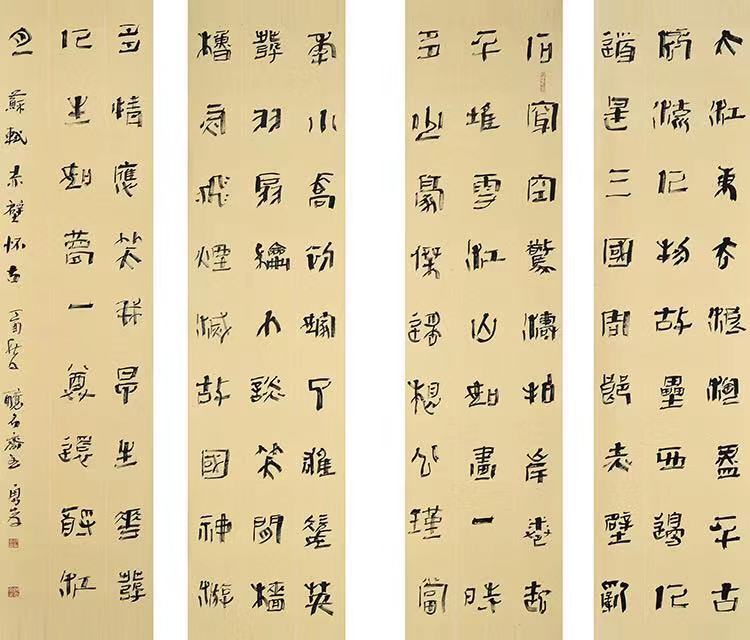 大江東去浪淘盡千古
風流人物故壘西邊人
道是三國周郎赤壁亂
石穿空驚濤拍岸卷起
千堆雪江山如畫一時
多少豪傑遙想公瑾當
年小喬初嫁了雄姿英
發羽扇綸巾談笑間檣
櫓灰飛煙滅故國神遊
多情應笑我早生華發
人生如夢一尊還酹江
月 蘇軾赤壁怀古